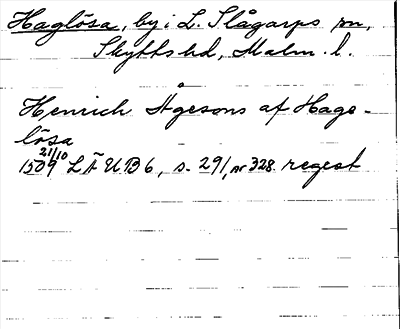 Haglösa, by i L. Slågarps sn,
Skytts hd, Malm. l.
Henrich Ågesons af Hage-
lösa
21/10
1509 LÄUB 6, s. 291, nr 328 regest